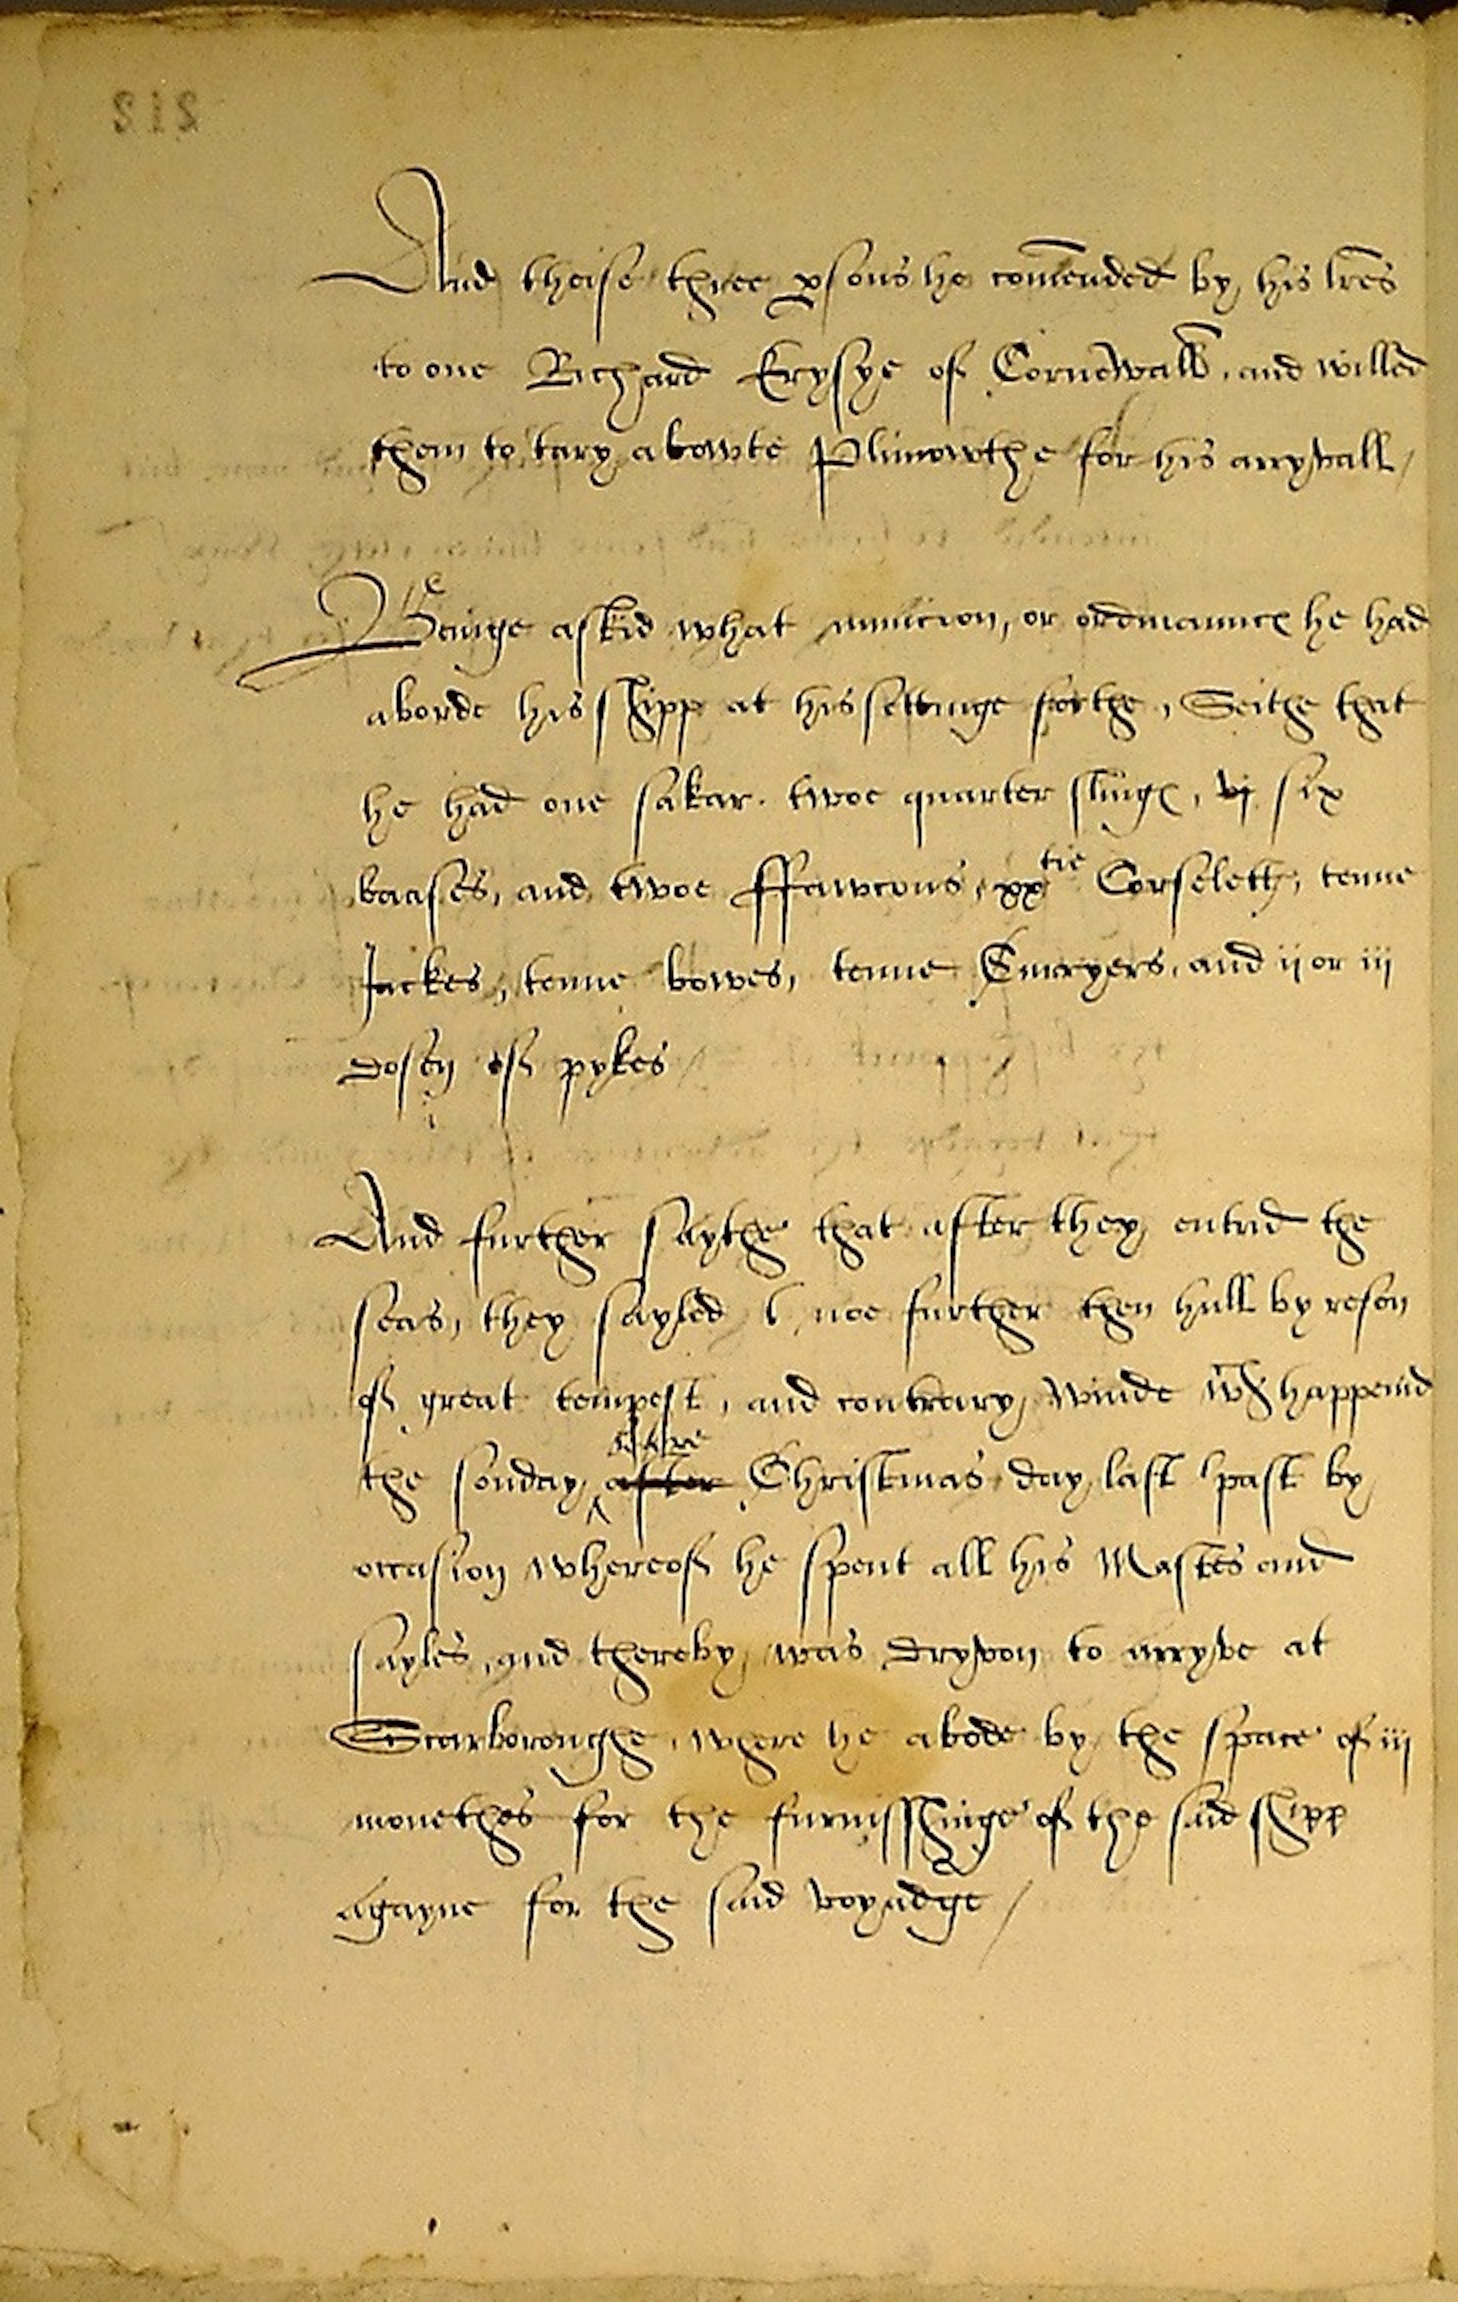 212
And theise three psons he comended by his lres
to one Richard Erysye of Cornewall, and willed
them to tary abowte Plimowthe for his arryvall /
Beinge askid what municion, or ordinaunce he had
aborde his shipp at his settinge forthe, Seithe that
he had one sakar. twoe quarter slinges, vj six
baases, and twoe ffawcons, xxtie Corselettes, tenne
Jackes, tenne bowes, tenne Curryers, and ij or iij
dosen of pykes /
And further saythe that after they entrid the
seas, they sayled noe further then hull by reson
of great tempest, and contrary winde wch happenid
the sonday before after Christmas day last past by
occasion whereof he spent all his Mastes and
sayles, and thereby was dryven to arryve at
Scarboroughe, where he abode by the space of iij
monethes for the furnisshinge of the said shipp
agayne for the said voyadge /